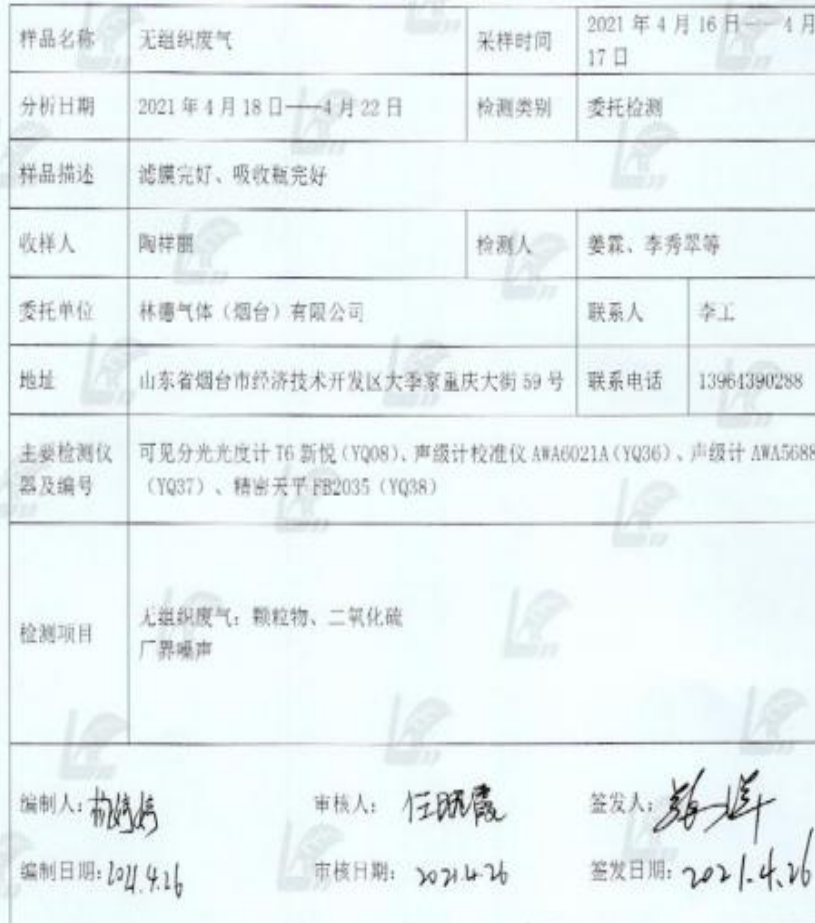 样品名称 无组织废气 采样时间 2021 年 4 月 16 日---4 月
17 日
分析日期 2021 年 4 月 18 日——4 月 22 日 检测类别 委托检测
样品描述 滤膜完好、吸收瓶完好
收样人 陶祥丽 检测人 姜霖、李秀翠等
委托单位 林德气体（烟台）有限公司 联系人 李工
地址 山东省烟台市经济技术开发区大季家重庆大街 59 号 联系电话 13964390288
主要检测仪 可见分光光度计 T6 新悦（YQ08）、声级计校准仪 AWA6021A（YQ36）、声级计 AWA5688
器及编号 （YQ37）、精密天平 FB2035（YQ38）
检测项目 无组织废气：颗粒物、二氧化硫
厂界噪声
编制人： 审核人： 任 霞 签发人：
编制日期：2021.4.26 审核日期：2021.4.26 签发日期：2021.4.26